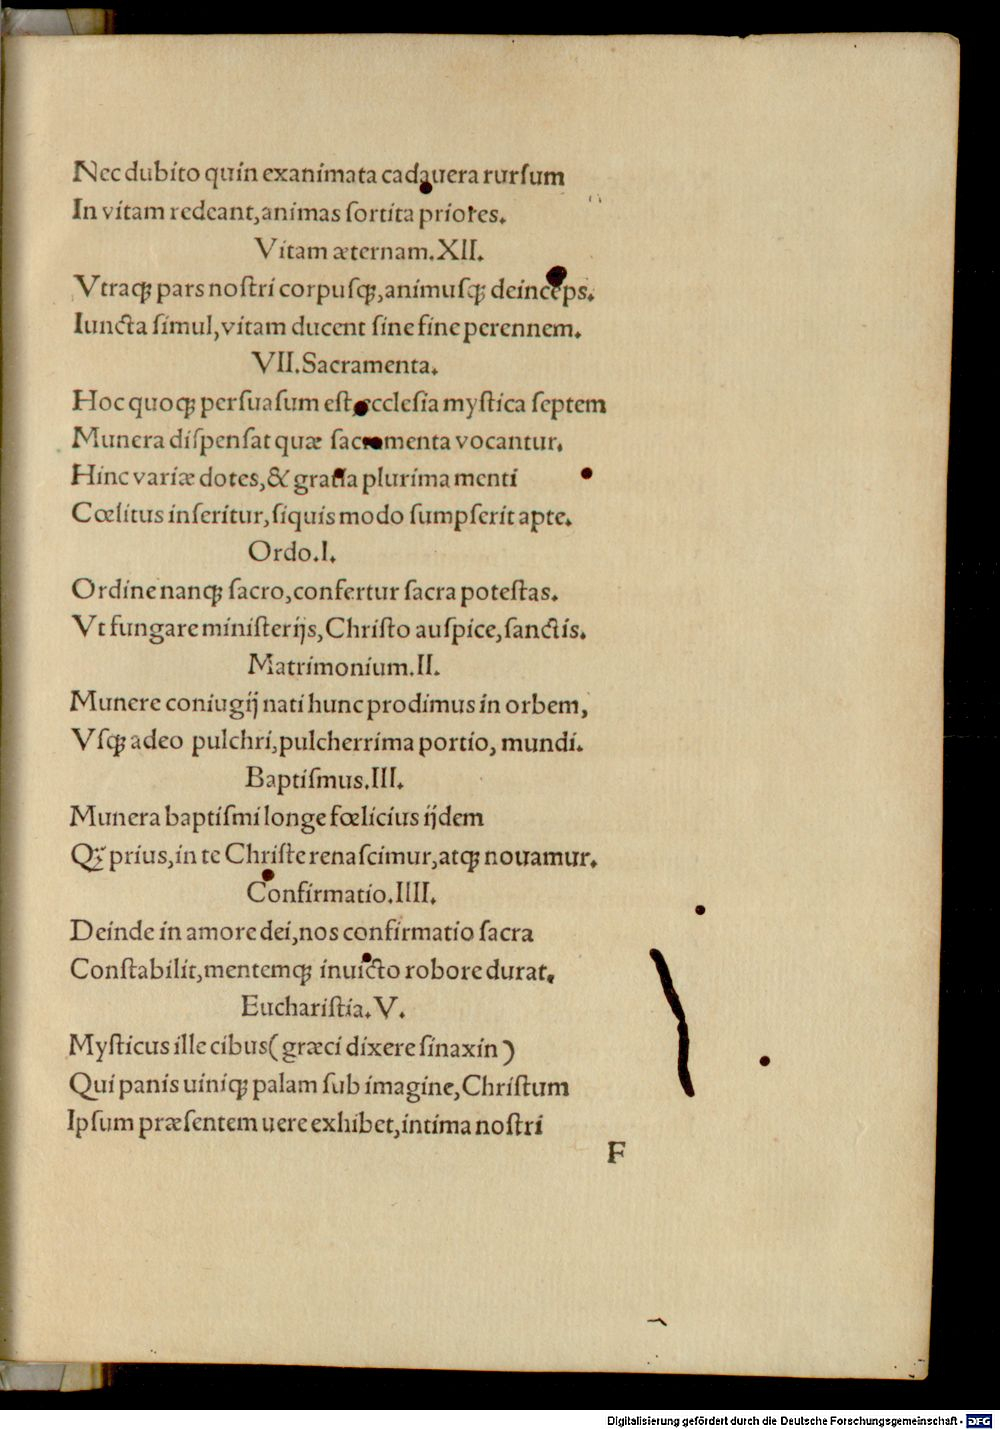 Nec dubito quin exanimata cadauera rurſum
In vitam redeant,animas ſortita priores.
Vitam æternam.XII.
Vtraqꝫ pars noſtri corpuſqꝫ,animuſqꝫ deinceps.
Iuncta ſimul,vitam ducent ſine fine perennem.
VII.Sacramenta.
Hoc quoqꝫ perſuaſum eſt,ecclesia myſtica ſeptem
Munera diſpenſat quæ ſacramenta vocantur.
Hinc variæ dotes,& gratia plurima menti
Cœlitus inſeritur,ſiquis modo ſumpſerit apte.
Ordo.I.
Ordine nanqꝫ ſacro,confertur ſacra poteſtas.
Vt fungare miniſterijs,Chriſto auſpice,ſanctis.
Matrimonium.II.
Munere coniugij nati hunc prodimus in orbem,
Vſqꝫ adeo pulchri,pulcherrima portio, mundi.
Baptiſmus.III.
Munera baptiſmi longe fœlicius ijdem
Qꝫ̃ prius,in te Chriſte renaſcimur,atqꝫ nouamur.
Confirmatio.IIII.
Deinde in amore dei,nos confirmatio ſacra
Conſtabilit,mentemqꝫ inuicto robore durat.
Euchariſtia.V.
Myſticus ille cibus(græci dixere ſinaxin)
Qui panis uiniqꝫ palam ſub imagine,Chriſtum
Ipſum præſentem uere exhibet,intima noſtri
F
Digitalisierung gefördert durch die Deutsche Forschungsgemeinschaft - DFG